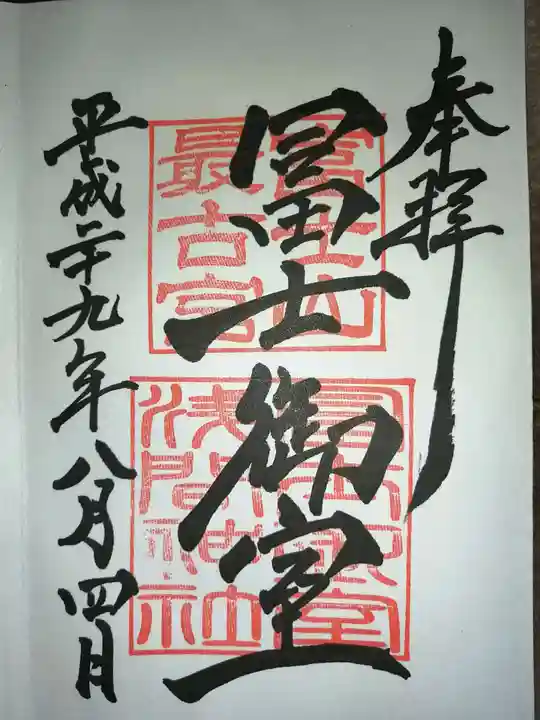 奉拝
冨士御室
富士山
最古宮
冨士御室
浅間神社
平成二十九年八月四日